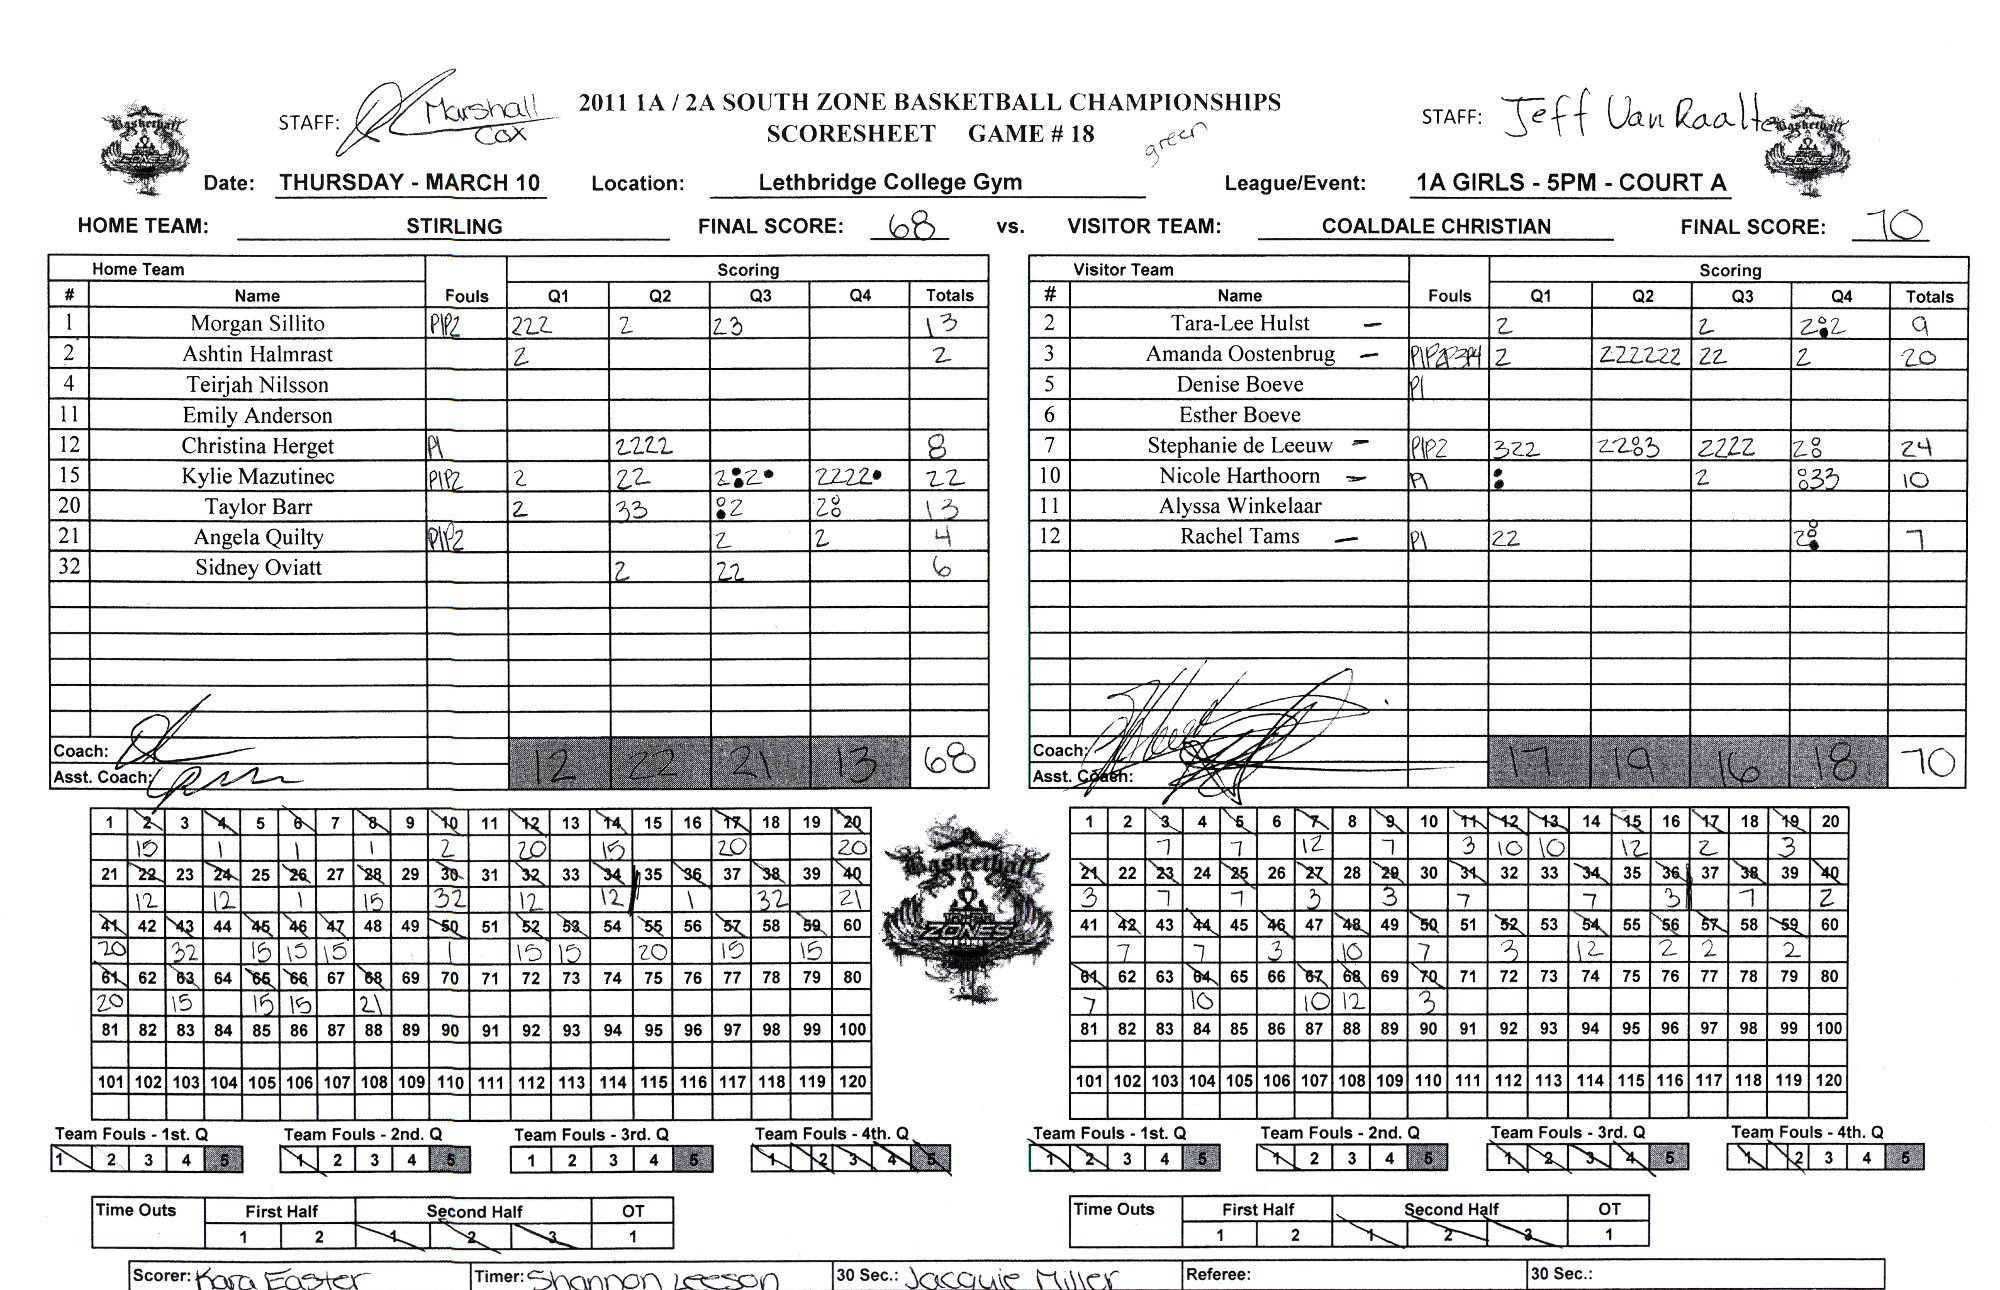 STAFF: Marshall Cox 2011 1A / 2A SOUTH ZONE BASKETBALL CHAMPIONSHIPS STAFF: Jeff VanRaalte
SCORESHEET GAME # 18 green
Date: THURSDAY - MARCH 10 Location: Lethbridge College Gym League/Event: 1A GIRLS - 5PM - COURT A
HOME TEAM: STIRLING FINAL SCORE: 68 vs. VISITOR TEAM: COALDALE CHRISTIAN FINAL SCORE: 70
Home Team Scoring
# Name Fouls Q1 Q2 Q3 Q4 Totals
1 Morgan Sillito P1P2 222 2 23 13
2 Ashtin Halmrast 2 2
4 Teirjah Nilsson
11 Emily Anderson
12 Christina Herget P1 2222 8
15 Kylie Mazutinec P1P2 2 22 2●●2● 2222● 22
20 Taylor Barr 2 33 ○●2 2○○ 13
21 Angela Quilty P1P2 2 2 4
32 Sidney Oviatt 2 22 6
Coach: 12 22 21 13 68
Asst. Coach:
Visitor Team Scoring
# Name Fouls Q1 Q2 Q3 Q4 Totals
2 Tara-Lee Hulst – 2 2 2○●2 9
3 Amanda Oostenbrug – P1P2P3P4 2 222222 22 2 20
5 Denise Boeve P1
6 Esther Boeve
7 Stephanie de Leeuw – P1P2 322 22○○3 2222 2○○ 24
10 Nicole Harthoorn – P1 ●● 2 ○○33 10
11 Alyssa Winkelaar
12 Rachel Tams – P1 22 2○○● 7
Coach: 17 19 16 18 70
Asst. Coach:
1 2 3 4 5 6 7 8 9 10 11 12 13 14 15 16 17 18 19 20
15 1 1 1 2 20 15 20 20
21 22 23 24 25 26 27 28 29 30 31 32 33 34 35 36 37 38 39 40
12 12 1 15 32 12 12 1 32 21
41 42 43 44 45 46 47 48 49 50 51 52 53 54 55 56 57 58 59 60
20 32 15 15 15 1 15 15 20 15 15
61 62 63 64 65 66 67 68 69 70 71 72 73 74 75 76 77 78 79 80
20 15 15 15 21
81 82 83 84 85 86 87 88 89 90 91 92 93 94 95 96 97 98 99 100
101 102 103 104 105 106 107 108 109 110 111 112 113 114 115 116 117 118 119 120
Basketball
ZONES
1 2 3 4 5 6 7 8 9 10 11 12 13 14 15 16 17 18 19 20
7 7 12 7 3 10 10 12 2 3
21 22 23 24 25 26 27 28 29 30 31 32 33 34 35 36 37 38 39 40
3 7 7 3 3 7 7 3 7 2
41 42 43 44 45 46 47 48 49 50 51 52 53 54 55 56 57 58 59 60
7 7 3 10 7 3 12 2 2 2
61 62 63 64 65 66 67 68 69 70 71 72 73 74 75 76 77 78 79 80
7 10 10 12 3
81 82 83 84 85 86 87 88 89 90 91 92 93 94 95 96 97 98 99 100
101 102 103 104 105 106 107 108 109 110 111 112 113 114 115 116 117 118 119 120
Team Fouls - 1st. Q Team Fouls - 2nd. Q Team Fouls - 3rd. Q Team Fouls - 4th. Q
1 2 3 4 5 1 2 3 4 5 1 2 3 4 5 1 2 3 4 5
Team Fouls - 1st. Q Team Fouls - 2nd. Q Team Fouls - 3rd. Q Team Fouls - 4th. Q
1 2 3 4 5 1 2 3 4 5 1 2 3 4 5 1 2 3 4 5
Time Outs First Half Second Half OT
1 2 1 2 3 1
Time Outs First Half Second Half OT
1 2 1 2 3 1
Scorer: Kara Easter Timer: Shannon Leeson 30 Sec.: Jacquie Miller Referee: 30 Sec.: